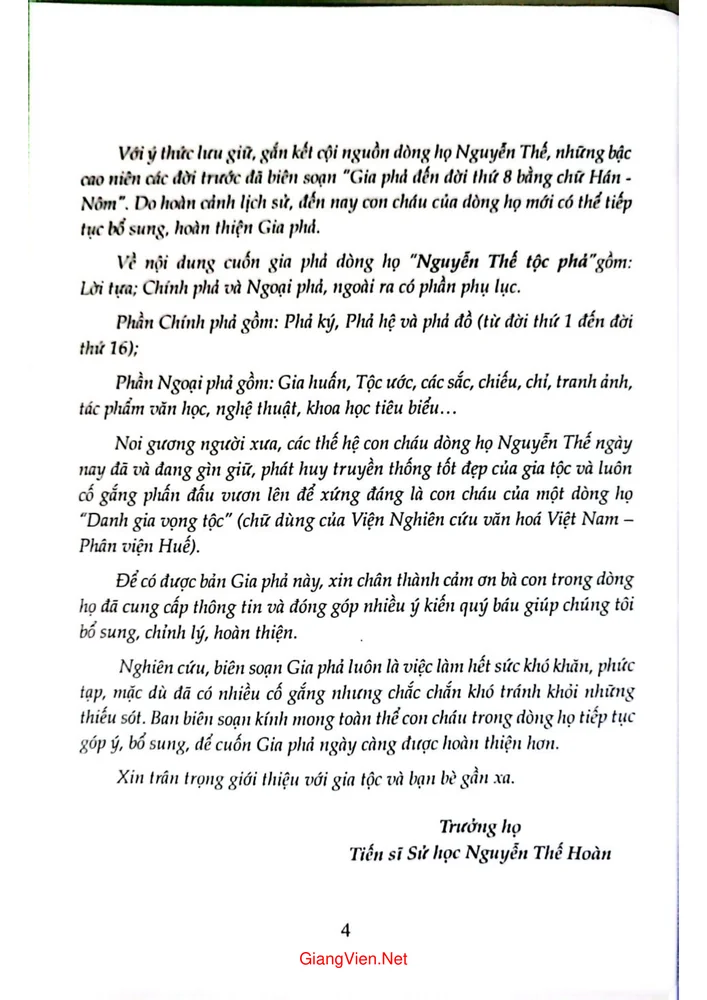 Với ý thức lưu giữ, gắn kết cội nguồn dòng họ Nguyễn Thế, những bậc
cao niên các đời trước đã biên soạn "Gia phả đến đời thứ 8 bằng chữ Hán -
Nôm". Do hoàn cảnh lịch sử, đến nay con cháu của dòng họ mới có thể tiếp
tục bổ sung, hoàn thiện Gia phả.
Về nội dung cuốn gia phả dòng họ "Nguyễn Thế tộc phả"gồm:
Lời tựa; Chính phả và Ngoại phả, ngoài ra có phần phụ lục.
Phần Chính phả gồm: Phả ký, Phả hệ và phả đồ (từ đời thứ 1 đến đời
thứ 16);
Phần Ngoại phả gồm: Gia huấn, Tộc ước, các sắc, chiếu, chỉ, tranh ảnh,
tác phẩm văn học, nghệ thuật, khoa học tiêu biểu…
Noi gương người xưa, các thế hệ con cháu dòng họ Nguyễn Thế ngày
nay đã và đang gìn giữ, phát huy truyền thống tốt đẹp của gia tộc và luôn
cố gắng phấn đấu vươn lên để xứng đáng là con cháu của một dòng họ
"Danh gia vọng tộc" (chữ dùng của Viện Nghiên cứu văn hoá Việt Nam –
Phân viện Huế).
Để có được bản Gia phả này, xin chân thành cảm ơn bà con trong dòng
họ đã cung cấp thông tin và đóng góp nhiều ý kiến quý báu giúp chúng tôi
bổ sung, chỉnh lý, hoàn thiện.
Nghiên cứu, biên soạn Gia phả luôn là việc làm hết sức khó khăn, phức
tạp, mặc dù đã có nhiều cố gắng nhưng chắc chắn khó tránh khỏi những
thiếu sót. Ban biên soạn kính mong toàn thể con cháu trong dòng họ tiếp tục
góp ý, bổ sung, để cuốn Gia phả ngày càng được hoàn thiện hơn.
Xin trân trọng giới thiệu với gia tộc và bạn bè gần xa.
Trưởng họ
Tiến sĩ Sử học Nguyễn Thế Hoàn
4
GiangVien.Net